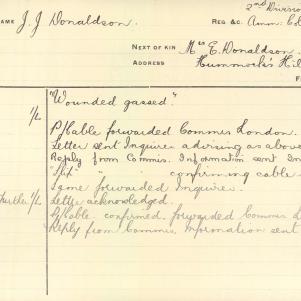 NAME J. J Donaldson.
2nd Division
REG &C. Amm. Col
NEXT OF KIN Mrs E. Donaldson
ADDRESS Hummock's Hil
"Wounded gassed."
1/2 P/Cable forwarded Commis London.
Letter sent Inquirer advising as above
Reply from Commis. Information sent In
" " confirming cable
Same forwarded Inquirer.
Further 1/2 Letter acknowledged.
P/Cable confirmed. forwarded Commis L
Reply from Commis Information sent